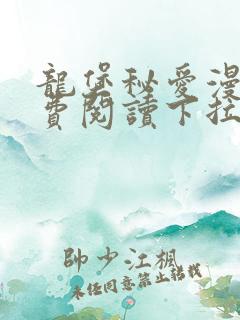 龍堡秘愛漫
費閱讀下拉
帥少江楓
未經同意禁止轉載